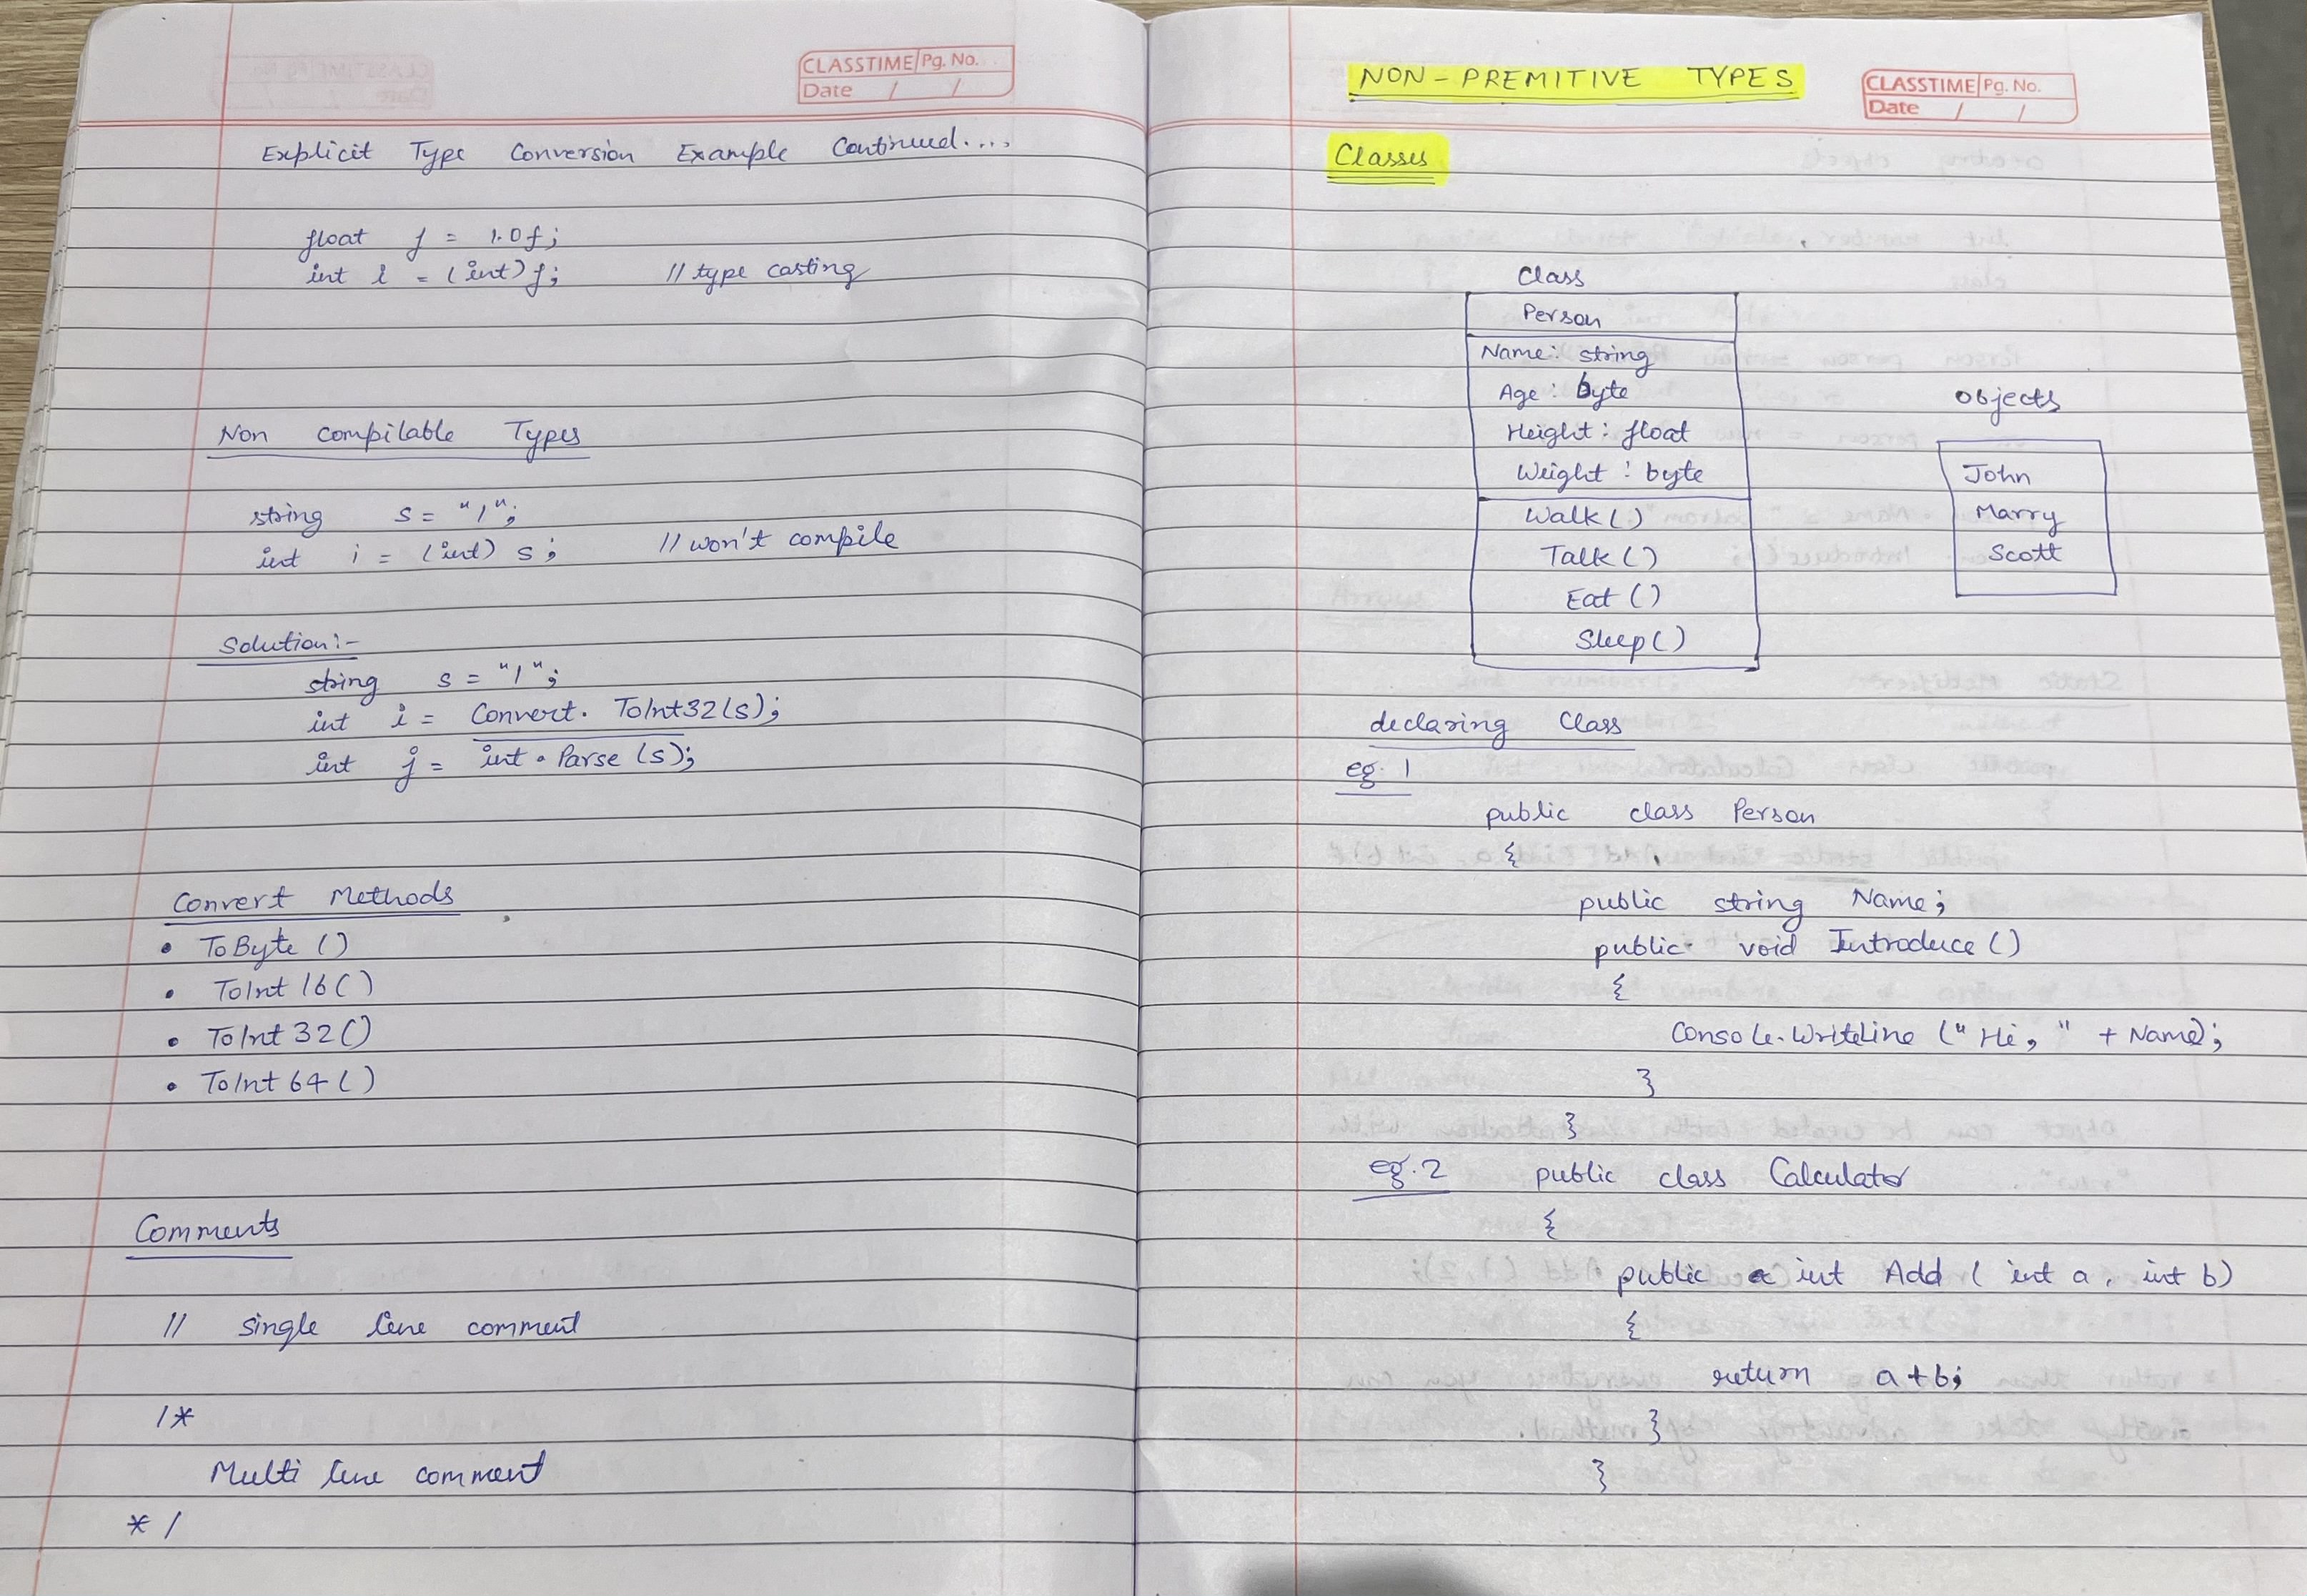 CLASSTIME Pg. No.
Date / /
Explicit Type Conversion Example Continued....
float f = 1.0f;
int i = (int)f; // type casting
Non compilable Types
string s = "1";
int i = (int) s; // won't compile
Solution:-
string s = "1";
int i = Convert. ToInt32(s);
int j = int.Parse (s);
Convert Methods
• ToByte ()
• ToInt 16()
• ToInt 32()
• ToInt 64()
Comments
// single line comment
/*
Multi line comment
*/
NON-PREMITIVE TYPES
CLASSTIME Pg. No.
Date / /
Classes
Class
Person
Name: string
Age: byte
Height: float
Weight: byte
Walk()
Talk()
Eat()
Sleep()
Objects
John
Marry
Scott
declaring Class
eg. 1
public class Person
{
public string Name;
public void Introduce()
{
Console.WriteLine ("Hi, " + Name);
}
}
eg. 2 public class Calculator
{
public int Add ( int a, int b)
{
return a+b;
}
}